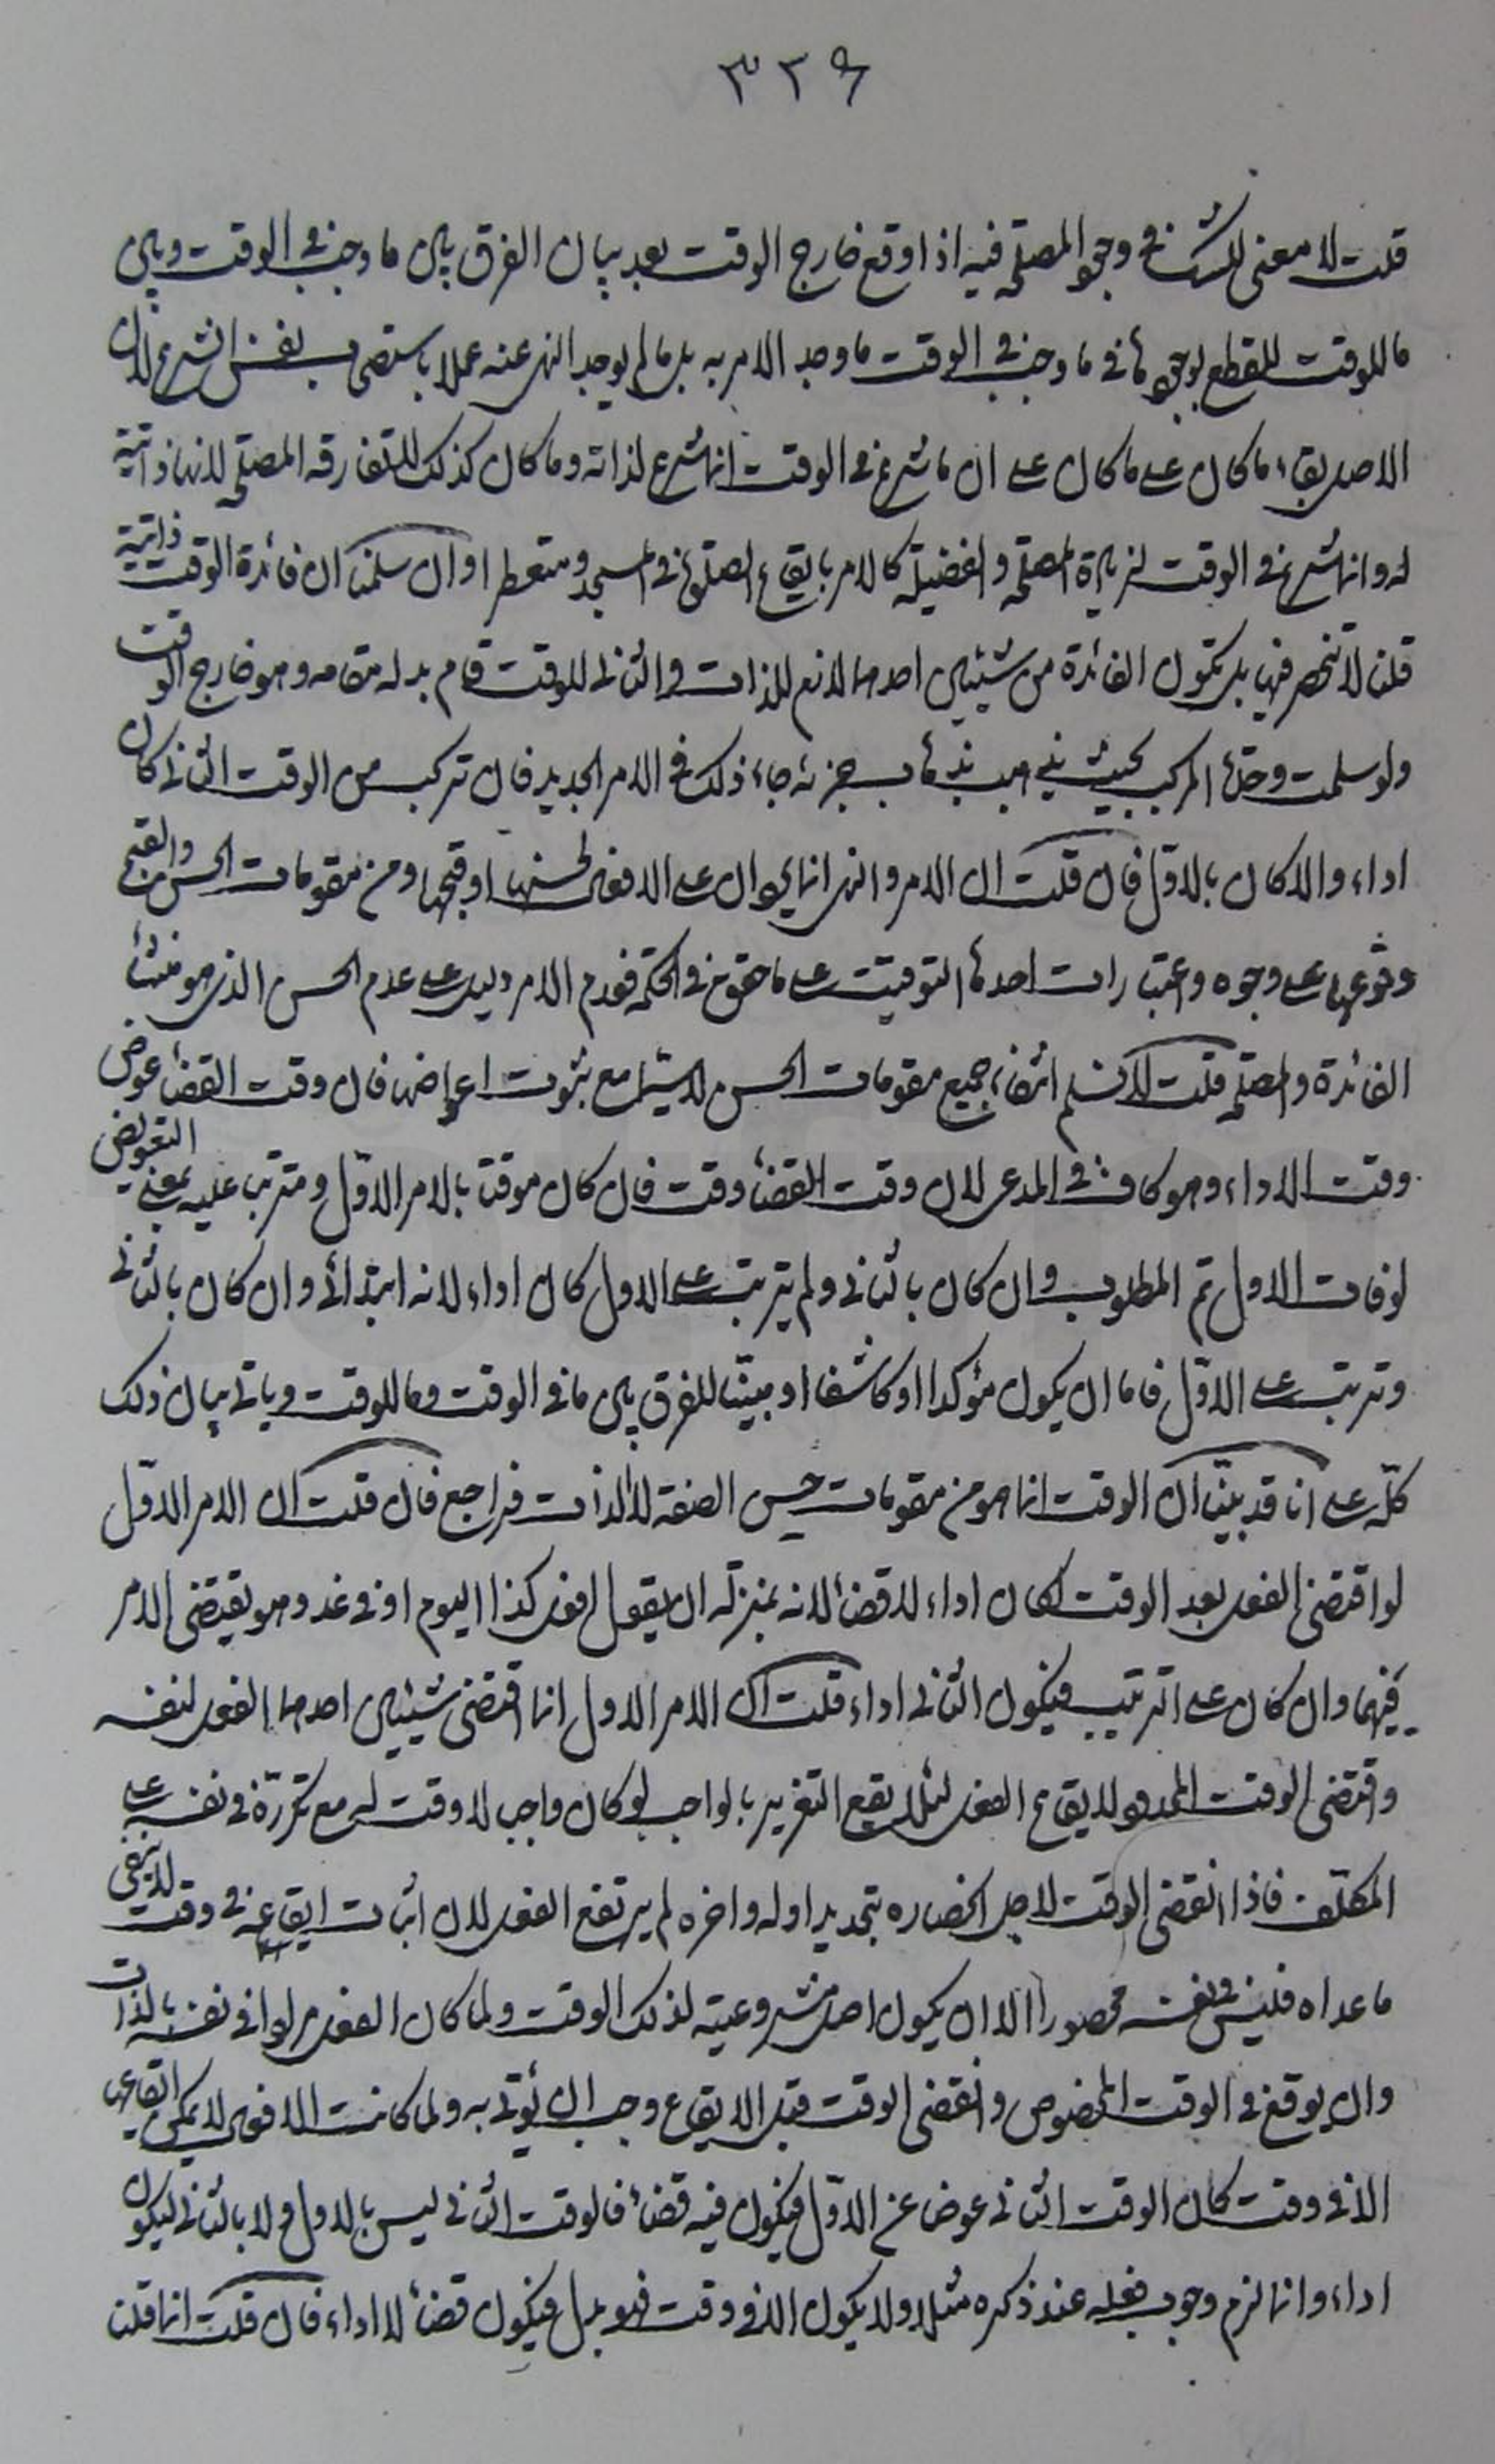 ٣٢٩
قلت لا معنى للشك في وجود المصلحة فيه اذا وقع خارج الوقت بعد بيان الفرق بين ما وجب في الوقت وبين
ما للوقت للقطع بوجودها في ما وجب في الوقت ما وجد الامر به بل ما لم يوجد النهي عنه عملا باستصحاب نفس الشرع لان
الاصل بقاء ما كان على ما كان على ان ما شرع في الوقت انما شرع لذاته وما كان كذلك لا تفارقه المصلحة لانها ذاتية
له وانما شرع في الوقت لزيادة المصلحة والفضيلة كالامر بايقاع الصلوة في المسجد ومتعطرا وان سلمنا ان فائدة الوقت ذاتية
قلنا لا تنحصر فيها بل تكون الفائدة من شيئين احدهما لازم للذات والثاني للوقت قام بدله مقامه وهو خارج الوقت
ولو سلمت وحدة المركب بحيث ذهاب جزئه جاء ذلك في الامر الجديد فان تركب من الوقت الثاني كان
اداء والا كان بالاول فان قلت ان الامر والنهي انما يردان على الافعال لحسنها او قبحها ومن مقومات الحسن والقبح
وقوعها على وجوه واعتبارات احدها التوقيت على ما حقق في الحكمة فعدم الامر دليل على عدم الحسن الذي هو منشأ
الفائدة والمصلحة قلت لا نسلم انتفاء جميع مقومات الحسن لا سيما مع ثبوت اعواضها فان وقت القضاء عوض
وقت الاداء وهو كاف في المدعى لان وقت القضاء وقت فان كان موقتا بالامر الاول ومترتب عليه بمعنى التعويض
لو فات الاول تم المطلوب وان كان بالثاني ولم يترتب على الاول كان اداء لانه ابتدائي وان كان بالثاني
وترتب على الاول فاما ان يكون مؤكدا او كاشفا او مبينا للفرق بين ما في الوقت وما للوقت ويأتي بيان ذلك
كله على انا قد بينا ان الوقت انما هو من مقومات حسن الصفة لا الذات فراجع فان قلت ان الامر الاول
لو اقتضى الفعل بعد الوقت لكان اداء لا قضاء لانه بمنزلة ان يقول افعل كذا اليوم او في غد وهو يقتضي الامر
فيهما وان كان على الترتيب فيكون الثاني اداء قلت ان الامر الاول انما اقتضى شيئين احدهما الفعل لنفسه
واقتضى الوقت المحدود لايقاع الفعل لئلا يقع التغرير بالواجب لو كان واجب لا وقت له مع تكرره في نفسه على
المكلف فاذا انقضى الوقت لاجل انحصاره بتحديد اوله واخره لم يرتفع الفعل لان اثبات ايقاعه في وقت لا ينفي
ما عداه فليس في نفسه محصورا الا ان يكون اصل مشروعيته لذلك الوقت ولما كان الفعل مرادا في نفسه بالذات
وان يوقع في الوقت المخصوص وانقضى الوقت قبل الايقاع وجب ان يؤتى به ولما كانت الافعال لا يمكن ايقاعها
الا في وقت كان الوقت الثاني عوض عن الاول فيكون فيه قضاء فالوقت الثاني ليس بالاول ولا بالثاني ليكون
اداء وانما لزم وجوب فعله عند ذكره مثلا ولا يكون الا في وقت فهو بدل فيكون قضاء لا اداء فان قلت انما قلنا